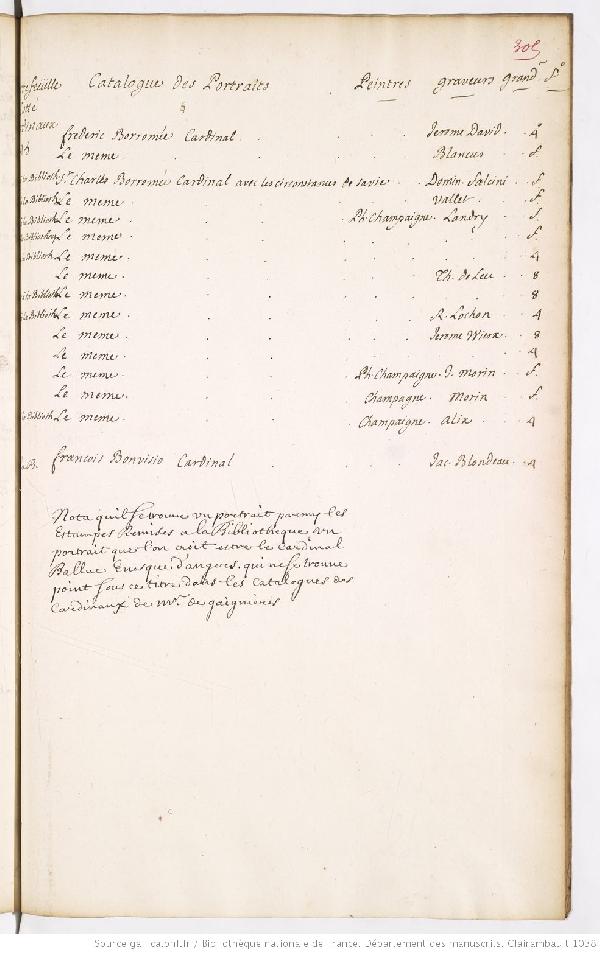 305
Catalogue des Portraits Peintres graveurs grand.r f.o
frederic Borromée Cardinal . . . . Jerome David . 4.o
Le meme . . . . Blancus . f.
la Biblioth S.t Charles Borromée Cardinal avec les circonstances de sa vie . . Domin. Falcini . f.
la Biblioth Le meme . . . . Vallet . f.
la Biblioth Le meme . . . Ph. Champaigne . Landry . f.
la Biblioth Le meme . . . . . f.
la Biblioth Le meme . . . . . 4
Le meme . . . . Th. de Leu . 8
la Biblioth Le meme . . . . . 8
la Biblioth Le meme . . . . R. Lochon . 4
Le meme . . . . Jerome Wierx . 8
Le meme . . . . . 4
Le meme . . . Ph. Champaigne . J. Morin . f.
Le meme . . . Champagne . Morin . f.
la Biblioth Le meme . . . Champaigne . Alix . 4
la B. francois Bonvisio Cardinal . . . . Jac. Blondeau . 4
Nota qu'il se trouve un portrait parmy les
Estampes Remises a la Bibliotheque un
portrait que l'on croit estre le cardinal
Ballue Evesque d'angers, qui ne se trouve
point sous ce titre dans les Catalogues des
Cardinaux de mr. de gaignieres
Source gallica.bnf.fr / Bibliothèque nationale de France. Département des manuscrits. Clairambault 1038